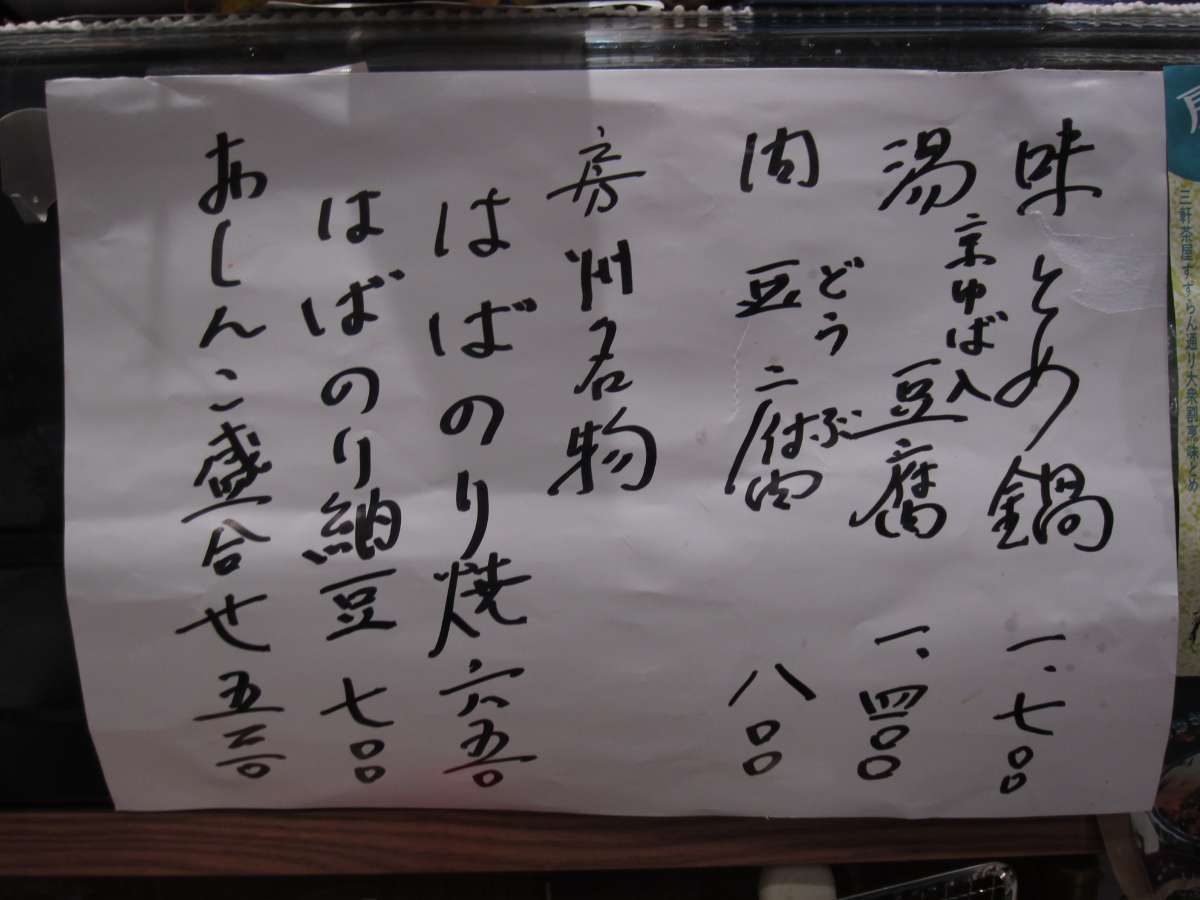 三軒茶屋すずらん通り大衆割烹味とめ
味とめ鍋 一、七〇〇
京ゆば入
湯豆腐 一、四〇〇
どうふ
肉豆腐 八〇〇
房州名物
はばのり焼 六五〇
はばのり納豆 七〇〇
おしんこ盛合せ 五三〇